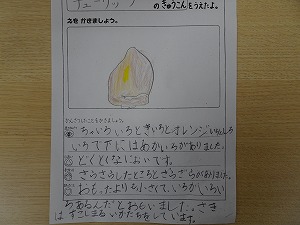 チューリップ
のきゅうこんをうえたよ。
えを かきましょう。
かんさつしたことをかきましょう。
ちゃいろいろときいろとオレンジいろとしろ
いろで下にはあかいろがありました。
どくとくなにおいです。
さらさらしたところとざらざらがありました。
おもったより小さくて、いろがいろい
ろあるんだとおもいました。さき
はすこしまるいかたちをしています。